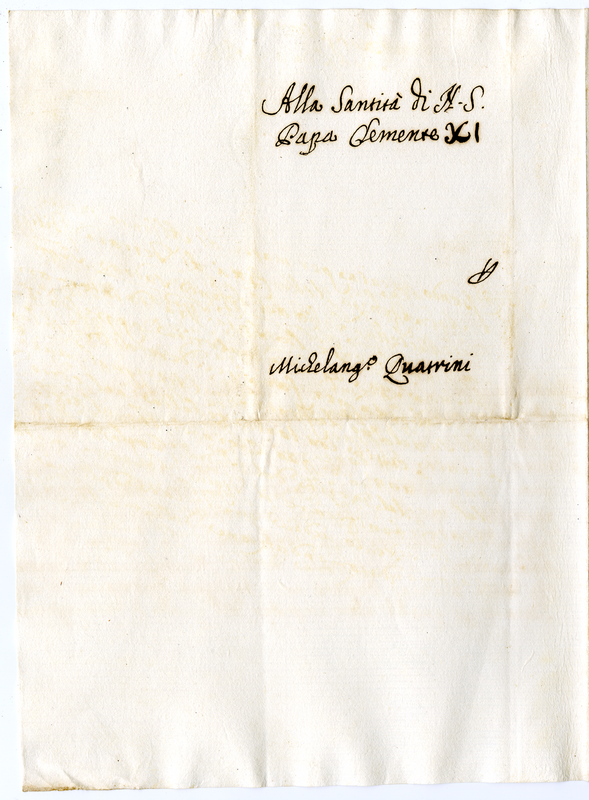 Alla Santità di N. S.
Papa Clemente XI
Michelang.o Quatrini